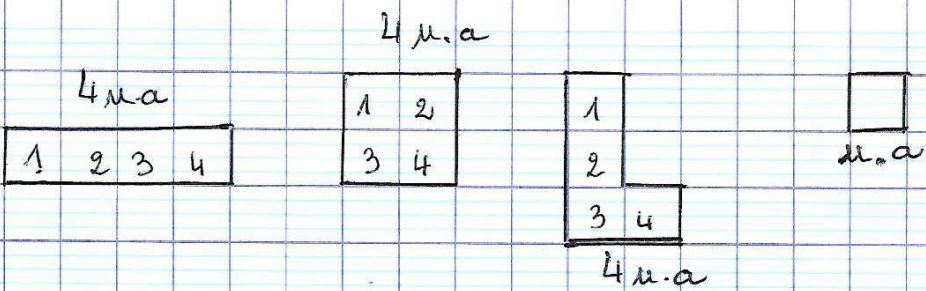 4 u.a
4 u.a
1 2 3 4
1 2
3 4
1
2
3 4
4 u.a
u.a